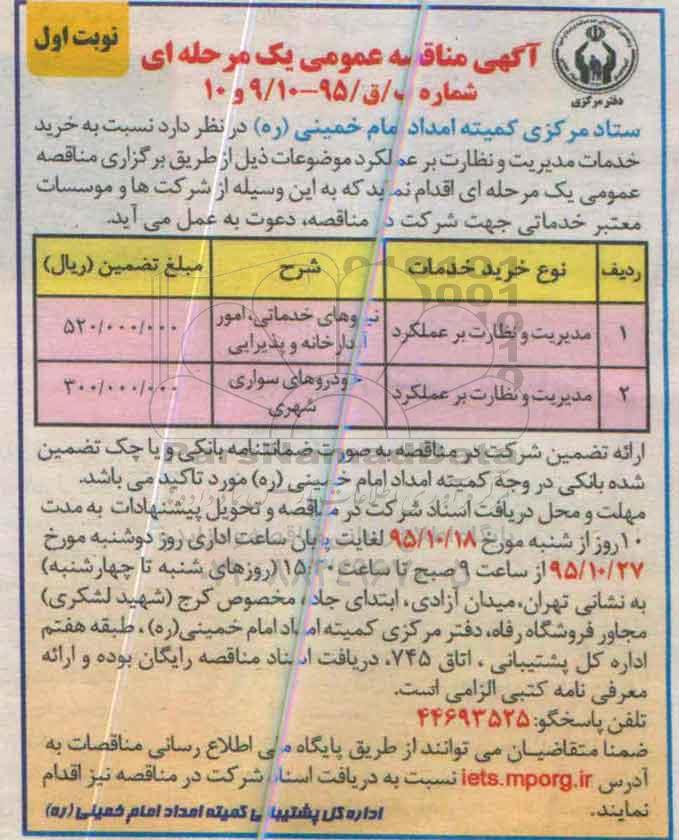 نوبت اول
دفتر مرکزی
آگهی مناقصه عمومی یک مرحله ای
شماره ب/ق/۹۵-۹/۱۰ و ۱۰
ستاد مرکزی کمیته امداد امام خمینی (ره) در نظر دارد نسبت به خرید
خدمات مدیریت و نظارت بر عملکرد موضوعات ذیل از طریق برگزاری مناقصه
عمومی یک مرحله ای اقدام نماید که به این وسیله از شرکت ها و موسسات
معتبر خدماتی جهت شرکت در مناقصه، دعوت به عمل می آید.
ردیف نوع خرید خدمات شرح مبلغ تضمین (ریال)
۱ مدیریت و نظارت بر عملکرد نیروهای خدماتی، امور آبدارخانه و پذیرایی ۵۲۰/۰۰۰/۰۰۰
۲ مدیریت و نظارت بر عملکرد خودروهای سواری شهری ۳۰۰/۰۰۰/۰۰۰
ارائه تضمین شرکت در مناقصه به صورت ضمانتنامه بانکی و یا چک تضمین
شده بانکی در وجه کمیته امداد امام خمینی (ره) مورد تاکید می باشد.
مهلت و محل دریافت اسناد شرکت در مناقصه و تحویل پیشنهادات به مدت
۱۰ روز از شنبه مورخ ۹۵/۱۰/۱۸ لغایت پایان ساعت اداری روز دوشنبه مورخ
۹۵/۱۰/۲۷ از ساعت ۹ صبح تا ساعت ۱۵:۳۰ (روزهای شنبه تا چهارشنبه)
به نشانی تهران، میدان آزادی، ابتدای جاده مخصوص کرج (شهید لشکری)
مجاور فروشگاه رفاه، دفتر مرکزی کمیته امداد امام خمینی(ره)، طبقه هفتم
اداره کل پشتیبانی ، اتاق ۷۴۵، دریافت اسناد مناقصه رایگان بوده و ارائه
معرفی نامه کتبی الزامی است.
تلفن پاسخگو: ۴۴۶۹۳۵۲۵
ضمنا متقاضیان می توانند از طریق پایگاه ملی اطلاع رسانی مناقصات به
آدرس iets.mporg.ir نسبت به دریافت اسناد شرکت در مناقصه نیز اقدام
نمایند.
اداره کل پشتیبانی کمیته امداد امام خمینی (ره)